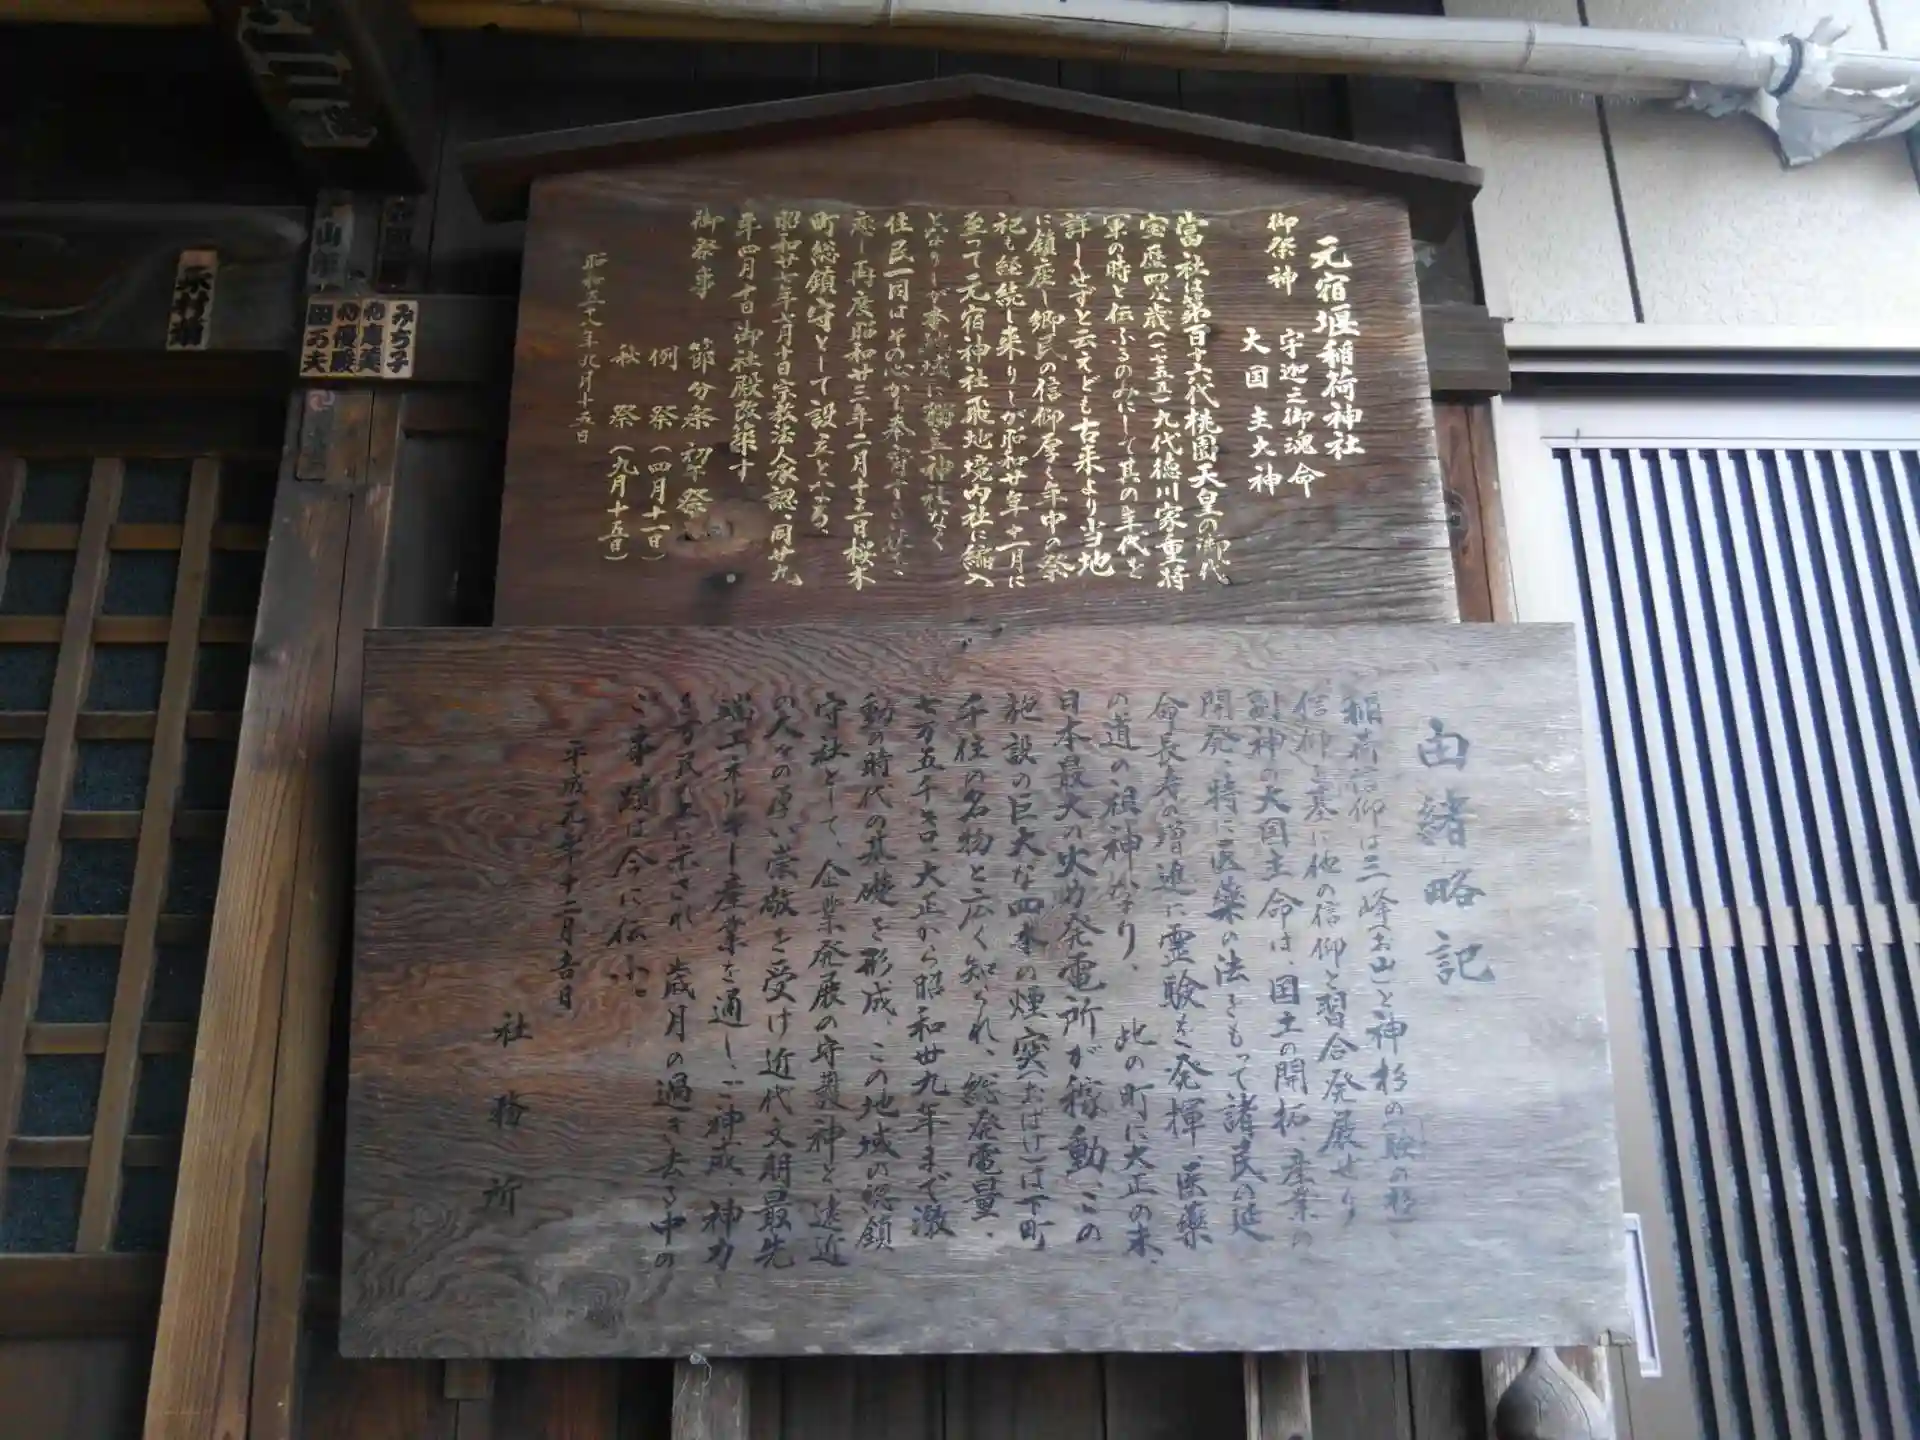 元宿堰稲荷神社
御祭神 宇迦之御魂命
大国主大神
當社は第百十六代桃園天皇の御代
宝暦四年歳(一七五五)九代徳川家重将
軍の時と伝ふるのみにして其の年代を
詳しせずと云えども古来より当地
に鎮座し郷民の信仰厚く年中の祭
祀も経続し来りしが昭和廿年十一月に
至って元宿神社飛地境内社に編入
となりしが本地域に独立神社なく
住民一同はその心が
恋し再度昭和廿三年二月十三日桜木
町総鎮守として設立と六ふ
昭和廿七年七月十日宗教法人承認同廿九
年四月十日御社殿改築す
御祭事 節分祭 初午祭
例祭(四月十一日)
秋祭(九月十五日)
昭和五十八年九月十五日
由緒略記
稲荷信仰は三峰(お山)と神杉の(験の杉)
信仰を基に他の信仰と習合発展せり
副神の大国主命は、国土の開拓、産業の
開発、特に医薬の法をもって諸民の延
命長寿の増進に霊験を発揮、医薬
の道の祖神なり、此の町に大正の末、
日本最大の火力発電所が稼動、この
施設の巨大な四本の煙突(おばけ)は下町
千住の名物と広く知られ、総発電量、
七万五千キロ大正から昭和卅九年まで激
動の時代の基礎を形成、この地域の総鎮
守社として、企業発展の守護神と遠近
の人々の厚い崇敬を受け近代文明最先
端エネルギー産業を通し、ご神威、神力
を万民上に示され歳月の過ぎ去る中の
ご事蹟は今に伝ふ。
平成元年十二月吉日
社務所
みち子